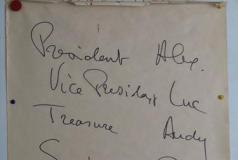 President Alex.
Vice President Luc
Treasure Andy